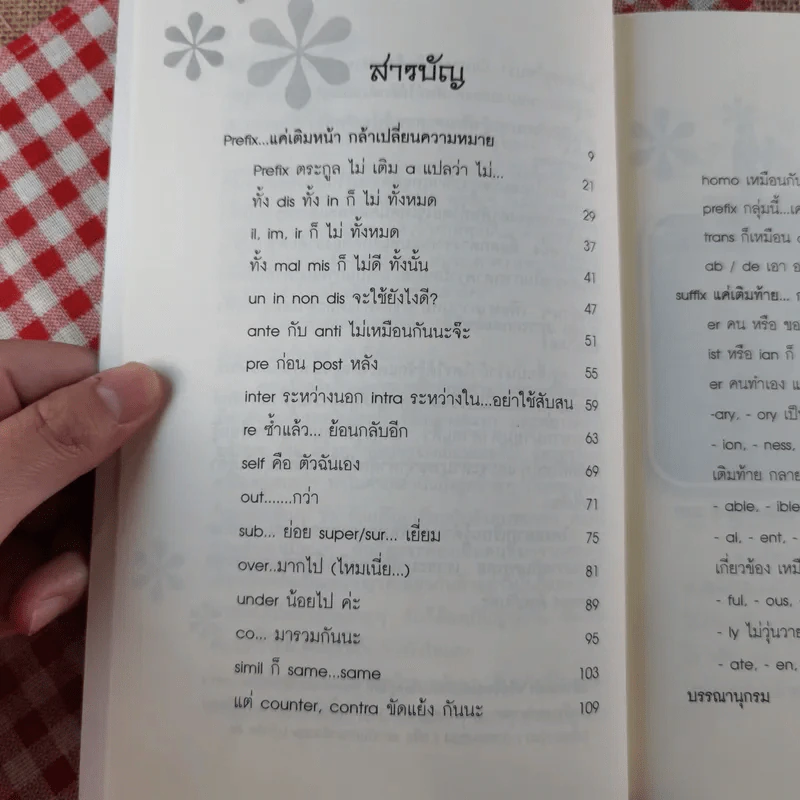 สารบัญ
Prefix...แค่เติมหน้า กล้าเปลี่ยนความหมาย 9
Prefix ตระกูล ไม่ เติม a แปลว่า ไม่... 21
ทั้ง dis ทั้ง in ก็ ไม่ ทั้งหมด 29
il, im, ir ก็ ไม่ ทั้งหมด 37
ทั้ง mal mis ก็ ไม่ดี ทั้งนั้น 41
un in non dis จะใช้ยังไงดี? 47
ante กับ anti ไม่เหมือนกันนะจ๊ะ 51
pre ก่อน post หลัง 55
inter ระหว่างนอก intra ระหว่างใน...อย่าใช้สับสน 59
re ซ้ำแล้ว... ย้อนกลับอีก 63
self คือ ตัวฉันเอง 69
out.......กว่า 71
sub... ย่อย super/sur... เยี่ยม 75
over..มากไป (ไหมเนี่ย...) 81
under น้อยไป ค่ะ 89
co... มารวมกันนะ 95
simil ก็ same...same 103
แต่ counter, contra ขัดแย้ง กันนะ 109
homo เหมือนกัน
prefix กลุ่มนี้...
trans ก็เหมือน
ab / de เอา
suffix แค่เติมท้าย...
er คน หรือ
ist หรือ ian ก็
er คนทำเอง
-ary, - ory
- ion, - ness,
เติมท้าย กลาย
- able, - ible
- al, - ent, -
เกี่ยวข้อง
- ful, - ous,
- ly ไม่วุ่นวาย
- ate, - en,
บรรณานุกรม